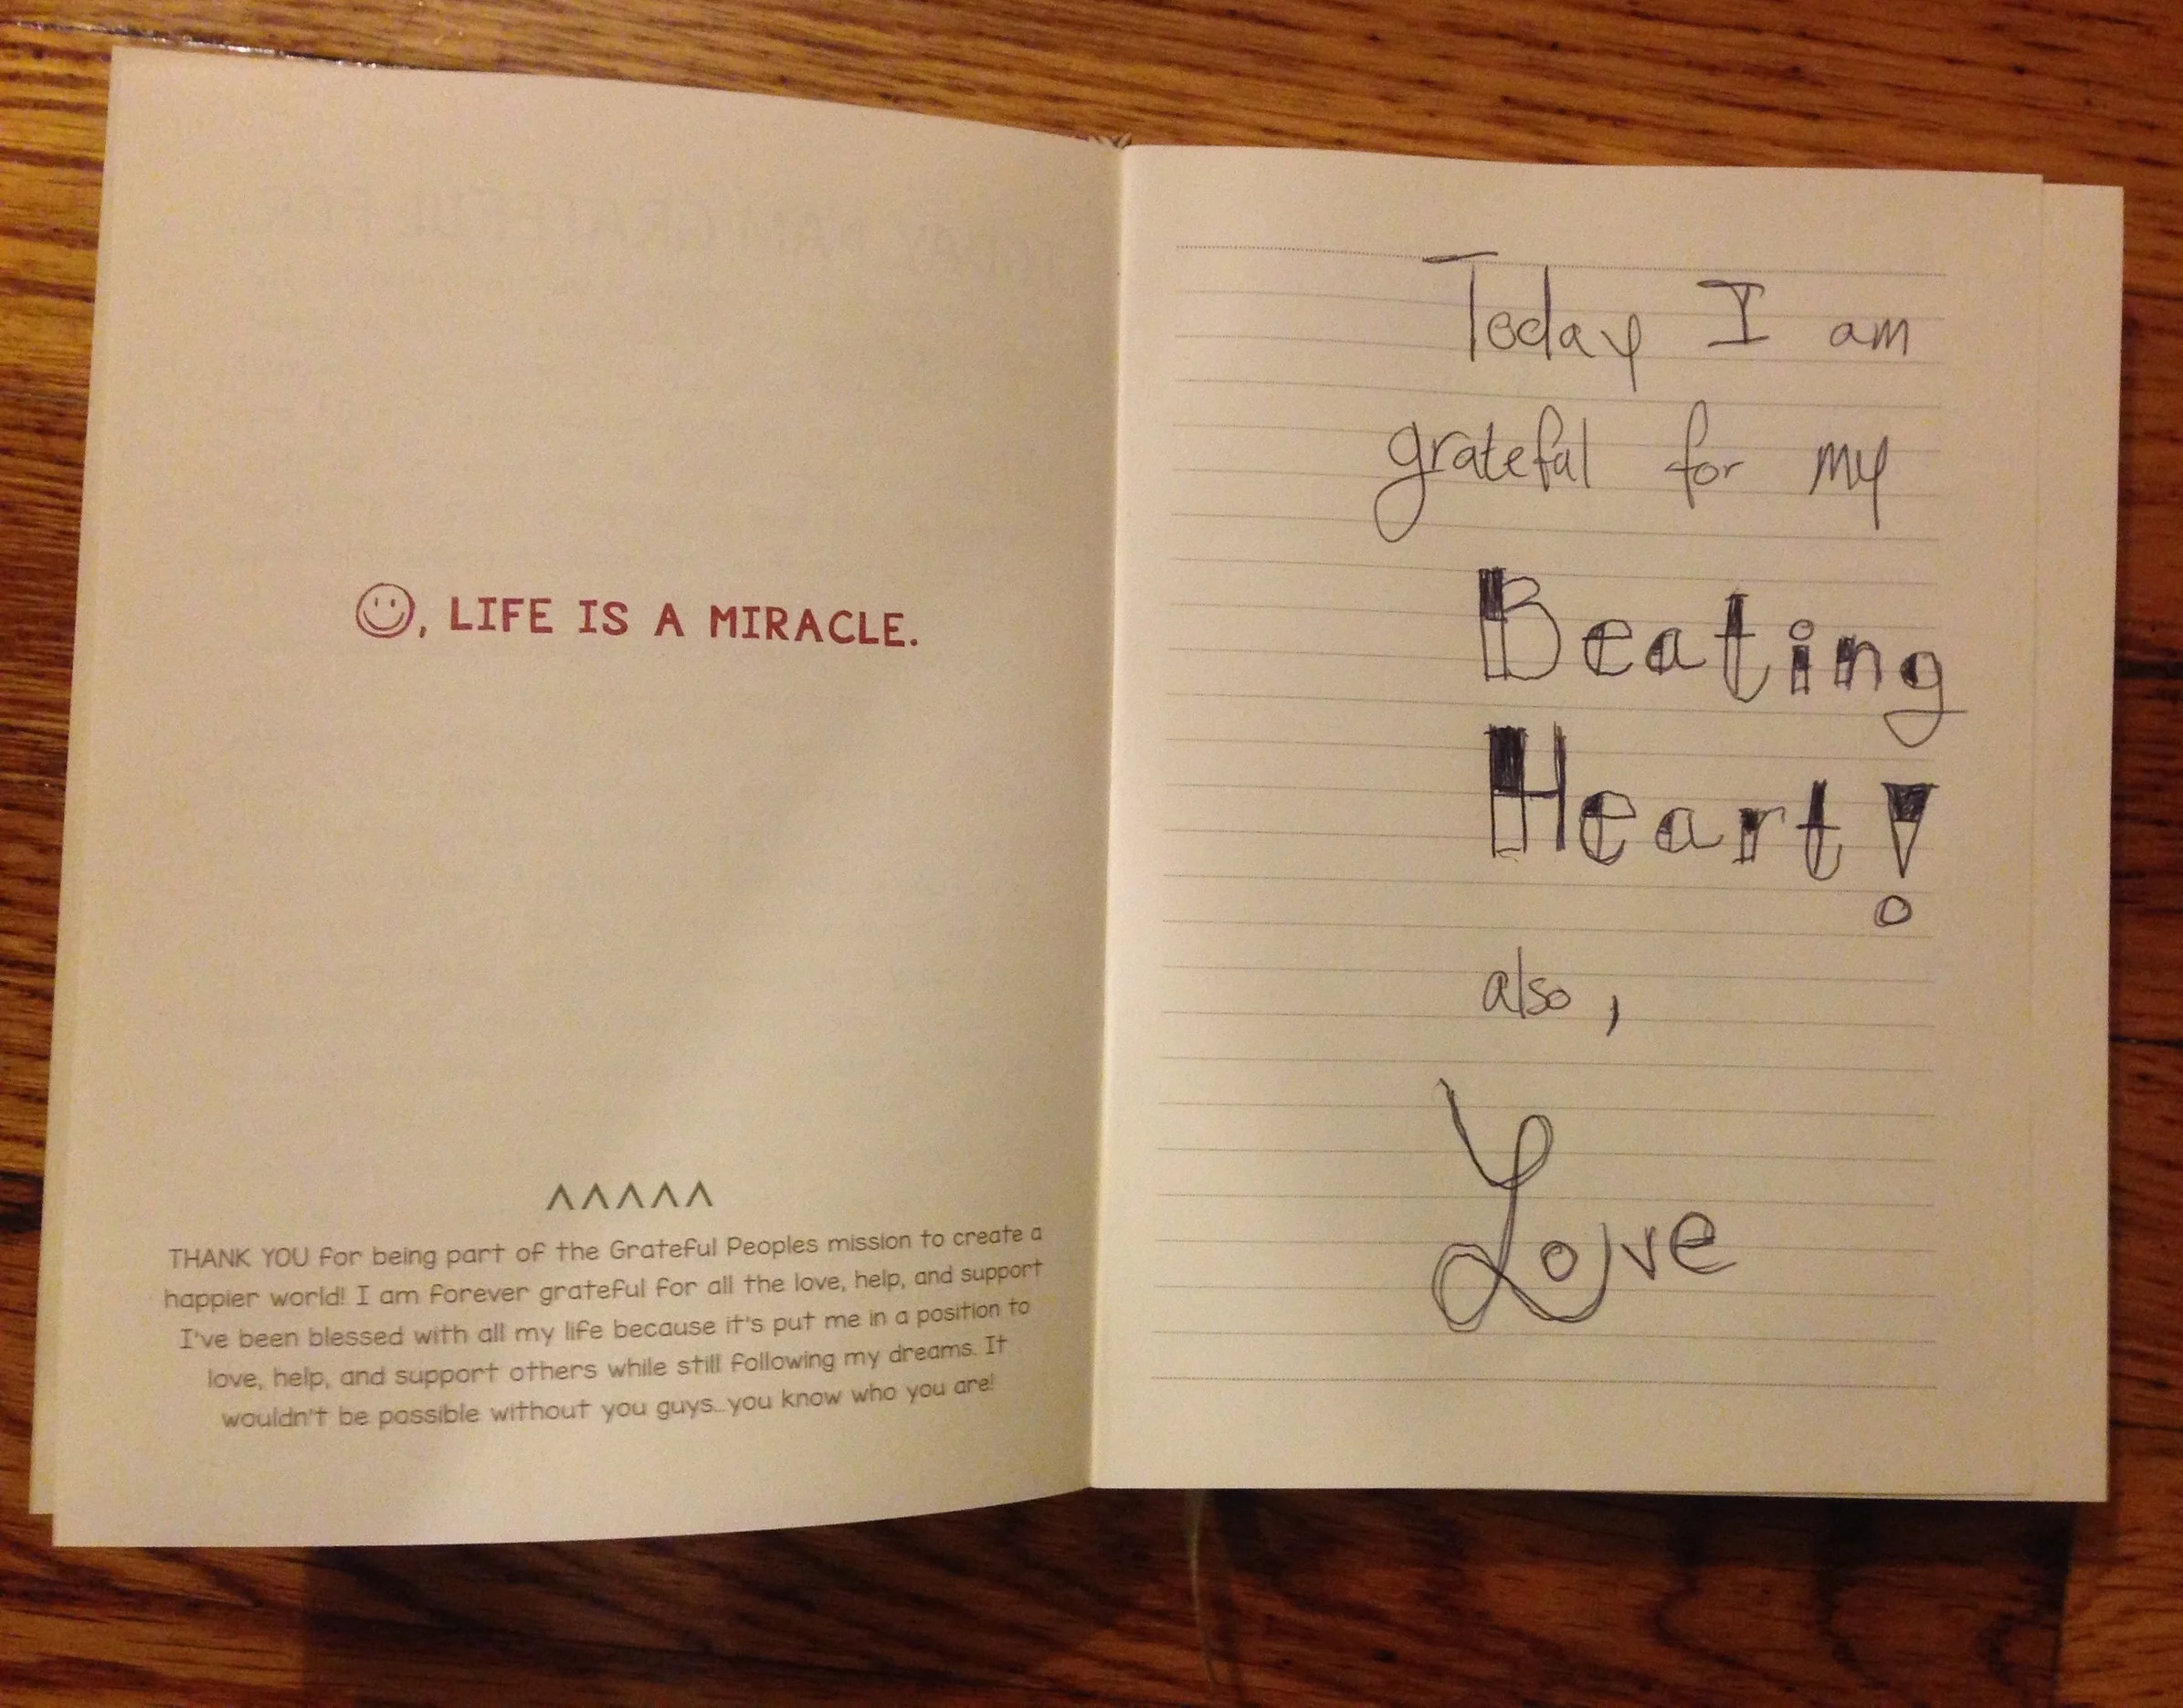 ☺, LIFE IS A MIRACLE.
^^^^^
THANK YOU for being part of the Grateful Peoples mission to create a
happier world! I am forever grateful for all the love, help, and support
I've been blessed with all my life because it's put me in a position to
love, help, and support others while still following my dreams. It
wouldn't be possible without you guys...you know who you are!
Today I am
grateful for my
Beating
Heart!
also,
Love